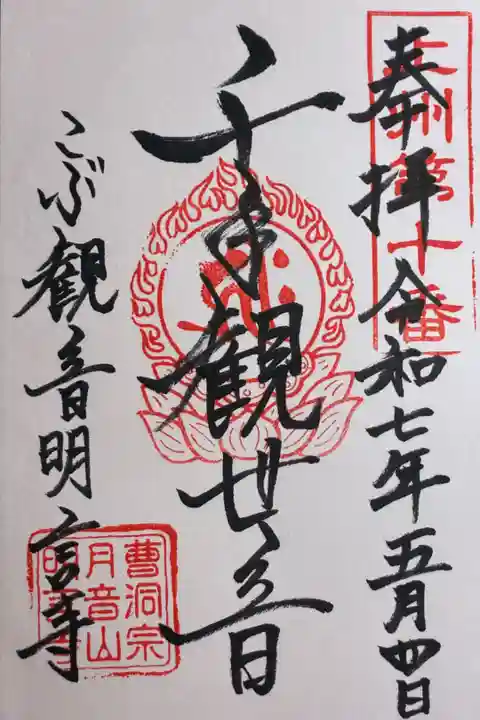 奉拝 令和七年五月四日
千手観世音
こぶ観音明言寺
第十番
曹洞宗
月音山